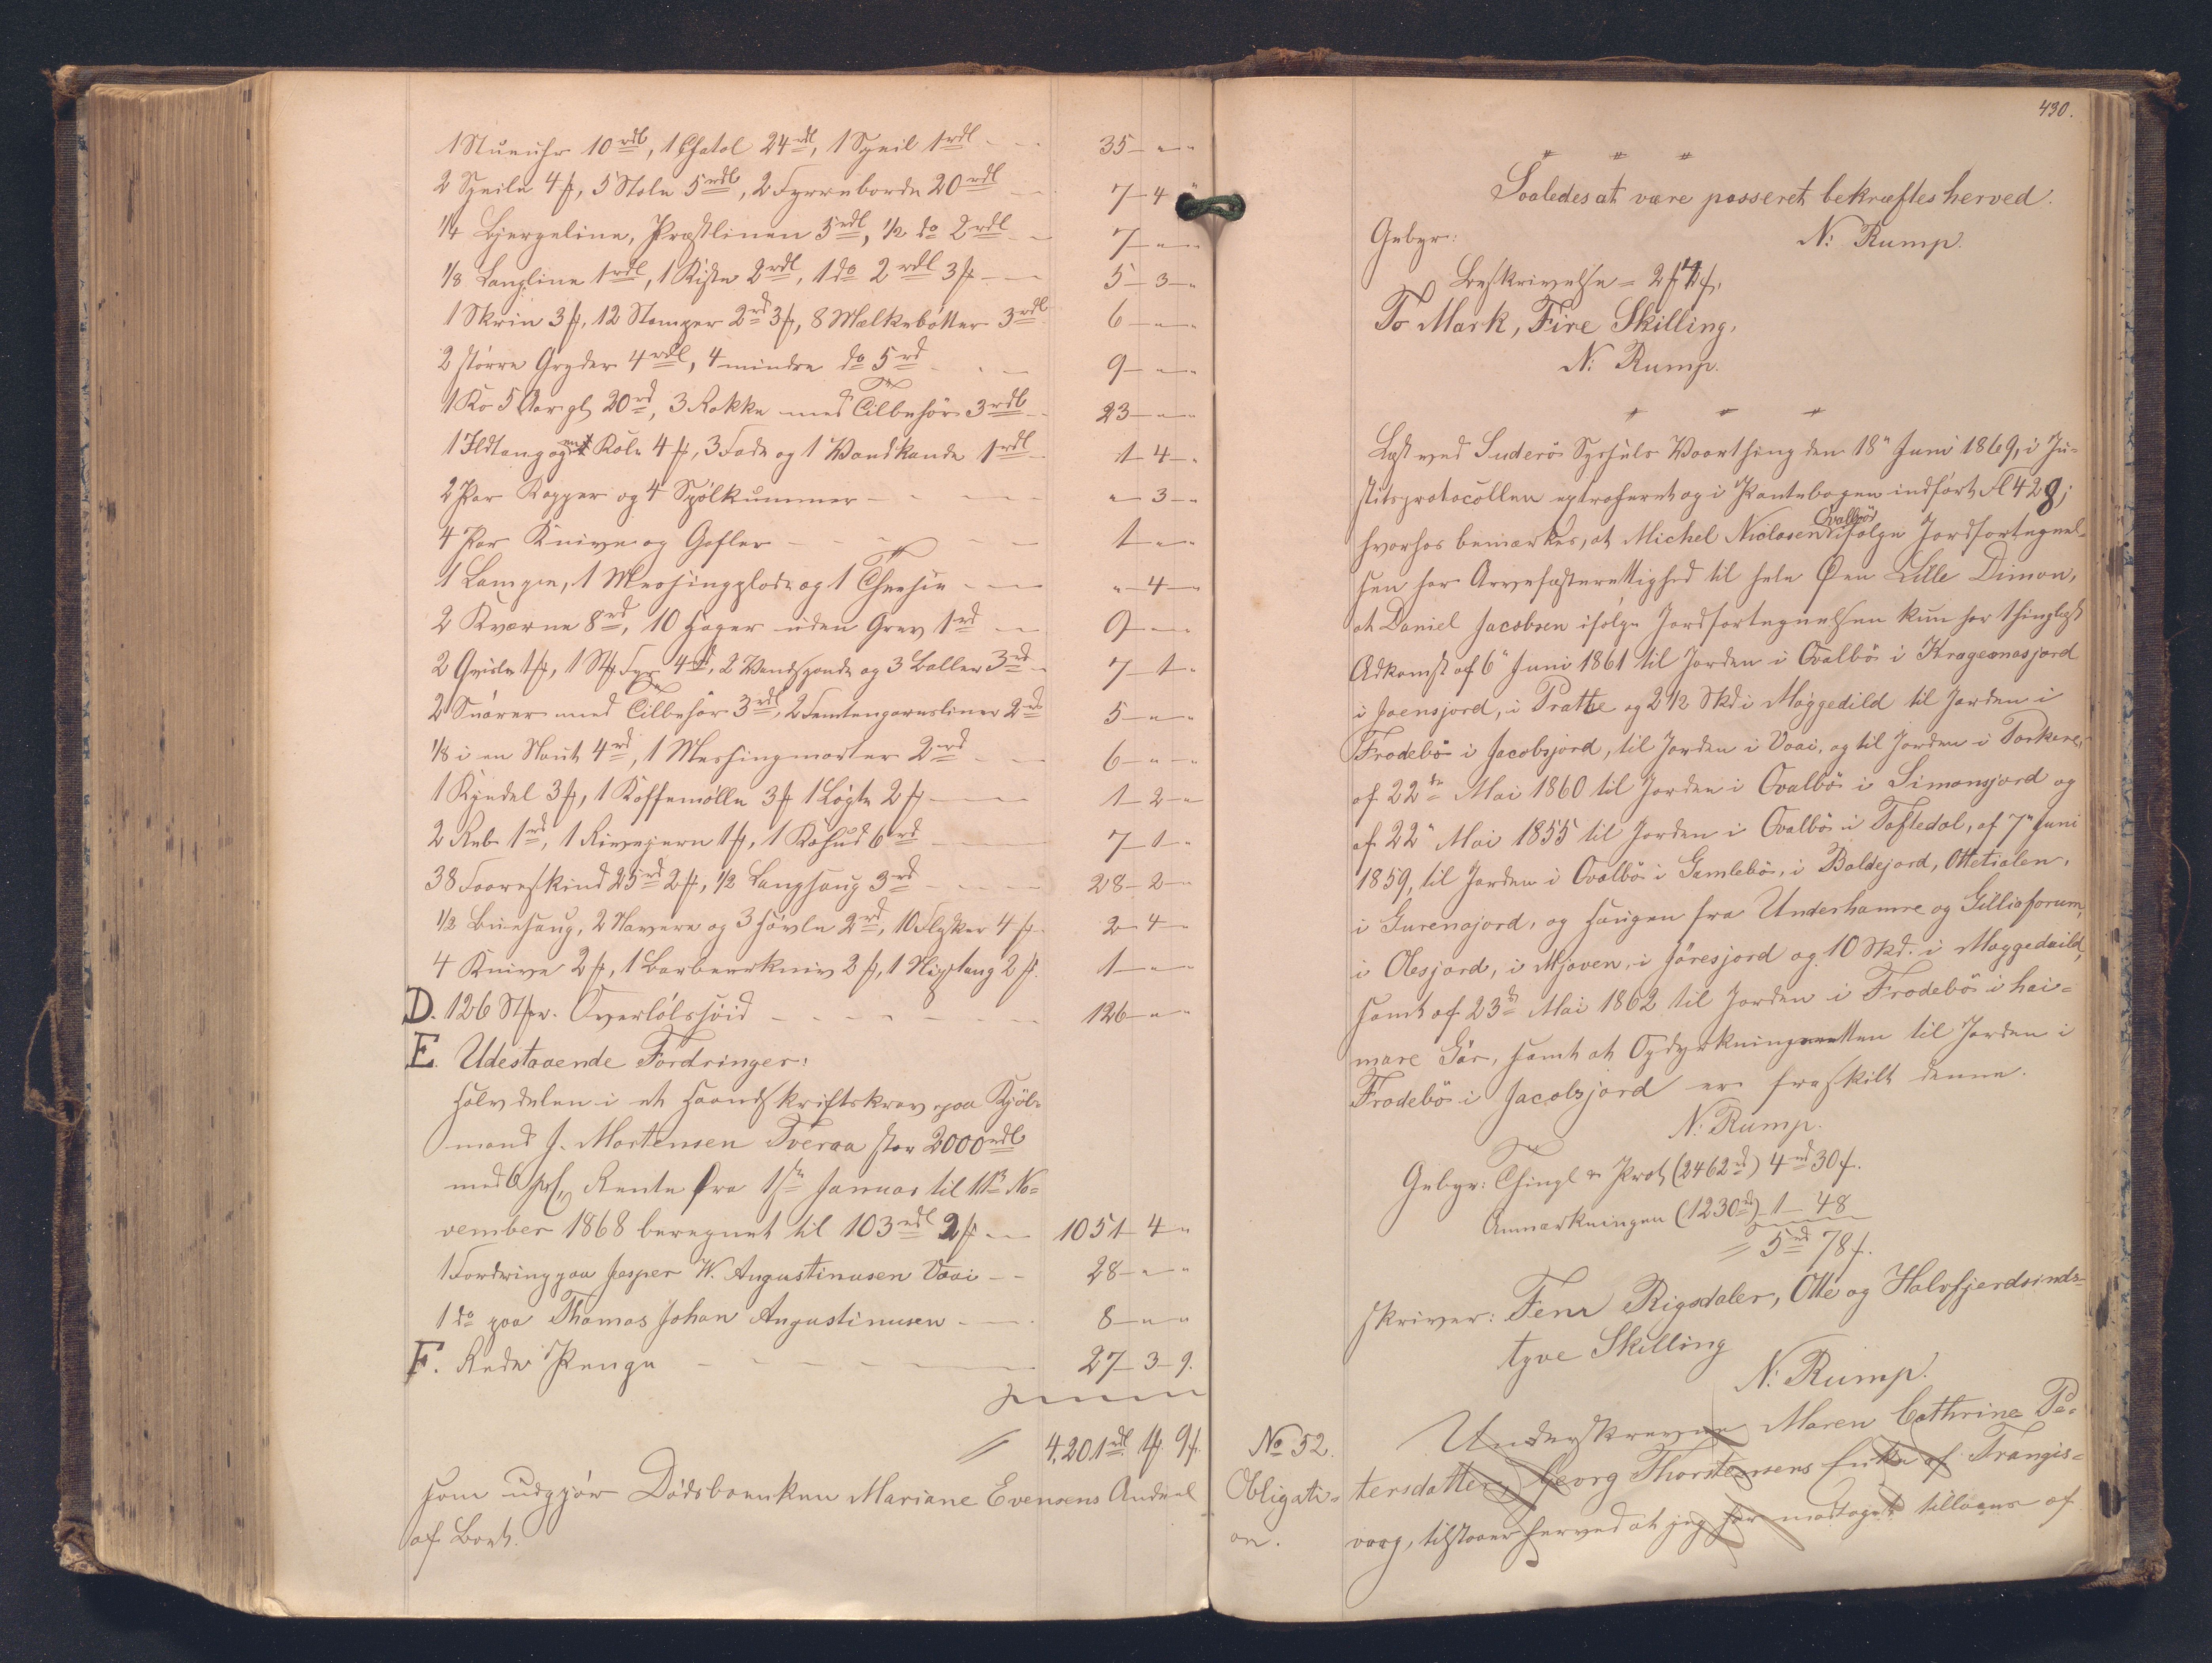 1 Stueuhr 10 rdl, 1 Chatol 24 rdl, 1 Speil 1 rdl - - 35 - " - "
2 Speile 4 ß, 5 Stole 5 rdl, 2 Fyrreborde 20 rdl - 7 - 4 "
1/4 Bjergeline, Præstlinen 5 rdl, 1/2 do 2 rdl - 7 - " - "
1/8 Langline 1 rdl, 1 Kiste 2 rdl, 1 do 2 rdl 3 ß - 5 - 3 - "
1 Skrin 3 ß, 12 Stamper 2 rd 3 ß, 8 Mælkebötter 3 rdl 6 - " - "
2 större Gryder 4 rdl, 4 mindre do 5 rd - - 9 - " - "
1 Ko 5 Aar gl 20 rd, 3 Rokke med Tilbehör 3 rdl - 23 - " - "
1 Ildtang og 4 ß, 3 Fade og 1 Vandkande 1 rdl - 1 - 4 - "
2 Par Kopper og 4 Spölkummer - - - " - 3 - "
4 Par Knive og Gafler - - - - 1 - " - "
1 Lampe, 1 Messingplade og 1 Theesie - - " - 4 - "
2 Kværne 8 rd, 10 Hager uden Grev 1 rd - 9 - " - "
2 1 ß, 1 4 rd, 2 Vandspande og 3 Baller 3 rd - 7 - 1 - "
2 Snörer med Tilbehör 3 rdl, 2 Femtengarnsliner 2 rd 5 - " - "
1/8 i en Naut 4 rd, 1 Messingmorter 2 rd - - 6 - " - "
1 Kyndel 3 ß, 1 Kaffemölle 3 ß 1 Lögte 2 ß - 1 - 2 - "
2 Reb 1 rd, 1 Rivejern 1 ß, 1 Kohud 6 rd - 7 - 1 - "
38 Faareskind 25 rd 2 ß, 1/2 Langhaug 3 rd - - 28 - 2 - "
1/2 Buehaug, 2 Navere og 3 Hövle 2 rd, 10 Flasker 4 ß 2 - 4 - "
4 Knive 2 ß, 1 Barbeerkniv 2 ß, 1 Nipstang 2 ß. 1 - " - "
D. 126 Overlölshöid - - - - - 126 - " - "
E. Udestaaende Fordringer:
Halvdelen i et Haandskriftskrav paa Kjöb-
mand J. Mortensen Tveraa stor 2000 rdl
med 6 pCt. Rente fra 1ste Januar til 11te No-
vember 1868 beregnet til 103 rdl 2 ß - 1051 - 4 - "
1 Fordring paa Jesper W. Augustinusen Vaai - - 28 - " - "
1 do paa Thomas Johan Augustinusen - - 8 - " - "
F. Rede Penge - - - - - 27 - 3 - 9.
= 4,201 rdl 1 ß 9 f.
som udgjör Dödsboenken Mariane Evensens Andeel
af Boet.
430.
Saaledes at være passeret bekræftes herved.
Gebyr: N: Rump.
Beskrivelse = 2 ß 4 f.
To Mark, Fire Skilling,
N: Rump.
Læst ved Suderö Syssels Vaarthing den 18" Juni 1869, i Ju-
stitsprotocollen extraheret og i Pantebogen indfört fl 428;
hvorhos bemærkes, at Michel Niclasen Qvalböe ifölge Jordfortegnel-
sen har Arvefæsterettighed til hele Öen Lille Dimon,
at Daniel Jacobsen ifölge Jordfortegnelsen kun har thinglæst
Adkomst af 6" Juni 1861 til Jorden i Qvalbö i Krageonasjord
i Joensjord, i Pratte og 2 1/2 Skd i Möggedild til Jorden i
Frodebö i Jacobsjord, til Jorden i Vaai, og til Jorden i Porkere,
af 22de Mai 1860 til Jorden i Qvalbö i Simonsjord og
af 22" Mai 1855 til Jorden i Qvalbö i Toftedal, af 7" Juni
1859, til Jorden i Qvalbö i Gamlebö, i Boldejord, Ottetialen,
i Gurenajord, og Haugen fra Underhamre og Gilliaforum,
i Olesjord, i Mjoven, i Jöresjord og 10 Skd. i Moggedeild,
samt af 23de Mai 1862 til Jorden i Frodebö i hei-
mare Gär, samt at Opdyrkningsretten til Jorden i
Frodebö i Jacobsjord er fraskilt denne.
N: Rump.
Gebyr: Thingl & Prot (2462 rd) 4 rd 30 f.
Anmærkningen (1230 rd) 1 - 48
= 5 rd 78 f.
skriver: Fem Rigsdaler, Otte og Halvfjerdsinds-
tyve Skilling
N: Rump.
No 52. Underskrevne Maren Cathrine Pe-
Obligati- tersdatter, Georg Thorstensens Enke af Trangis-
on. vaag, tilstaaer herved at jeg har modtaget tillaans af